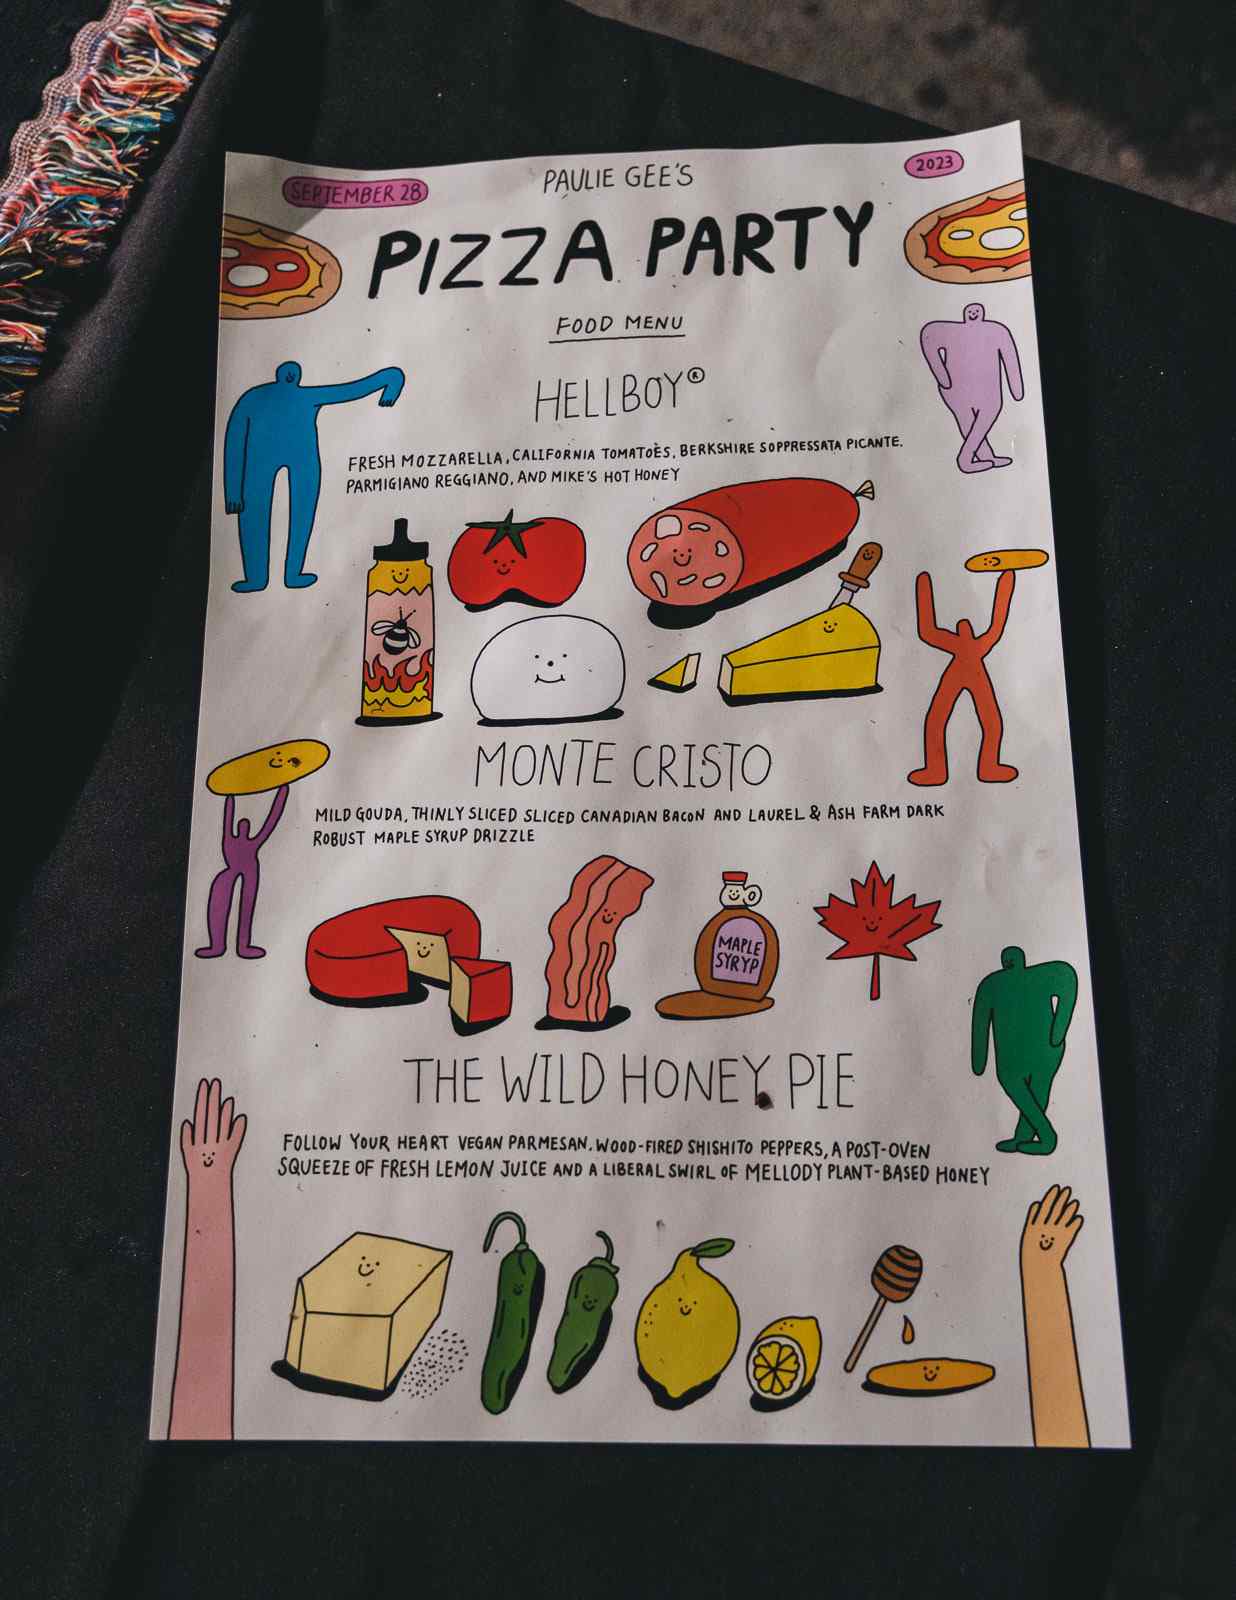 SEPTEMBER 28
PAULIE GEE'S
2023
PIZZA PARTY
FOOD MENU
HELLBOY®
FRESH MOZZARELLA, CALIFORNIA TOMATOES, BERKSHIRE SOPPRESSATA PICANTE.
PARMIGIANO REGGIANO, AND MIKE'S HOT HONEY
MONTE CRISTO
MILD GOUDA, THINLY SLICED SLICED CANADIAN BACON AND LAUREL & ASH FARM DARK
ROBUST MAPLE SYRUP DRIZZLE
MAPLE
SYRYP
THE WILD HONEY PIE
FOLLOW YOUR HEART VEGAN PARMESAN. WOOD-FIRED SHISHITO PEPPERS, A POST-OVEN
SQUEEZE OF FRESH LEMON JUICE AND A LIBERAL SWIRL OF MELLODY PLANT-BASED HONEY